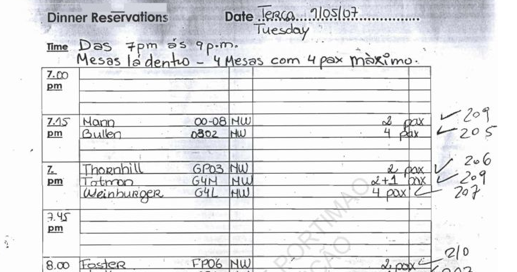 Dinner Reservations Date Terça 1/05/07
Tuesday
Time Das 7pm ás 9p.m.
Mesas lá dentro - 4 Mesas com 4 pax máximo.
7.00
pm
7.15 Mann 00-08 NW 2 pax 209
pm Bullen 0802 NW 4 pax 205
7. Thornhill GP03 NW 2 pax 206
pm Tatman G4M NW 2+1 pax 209
Weinburger G4L NW 4 pax 207
7.45
pm
8.00 Foster FP06 NW 2 pax 210
PORTIMAO